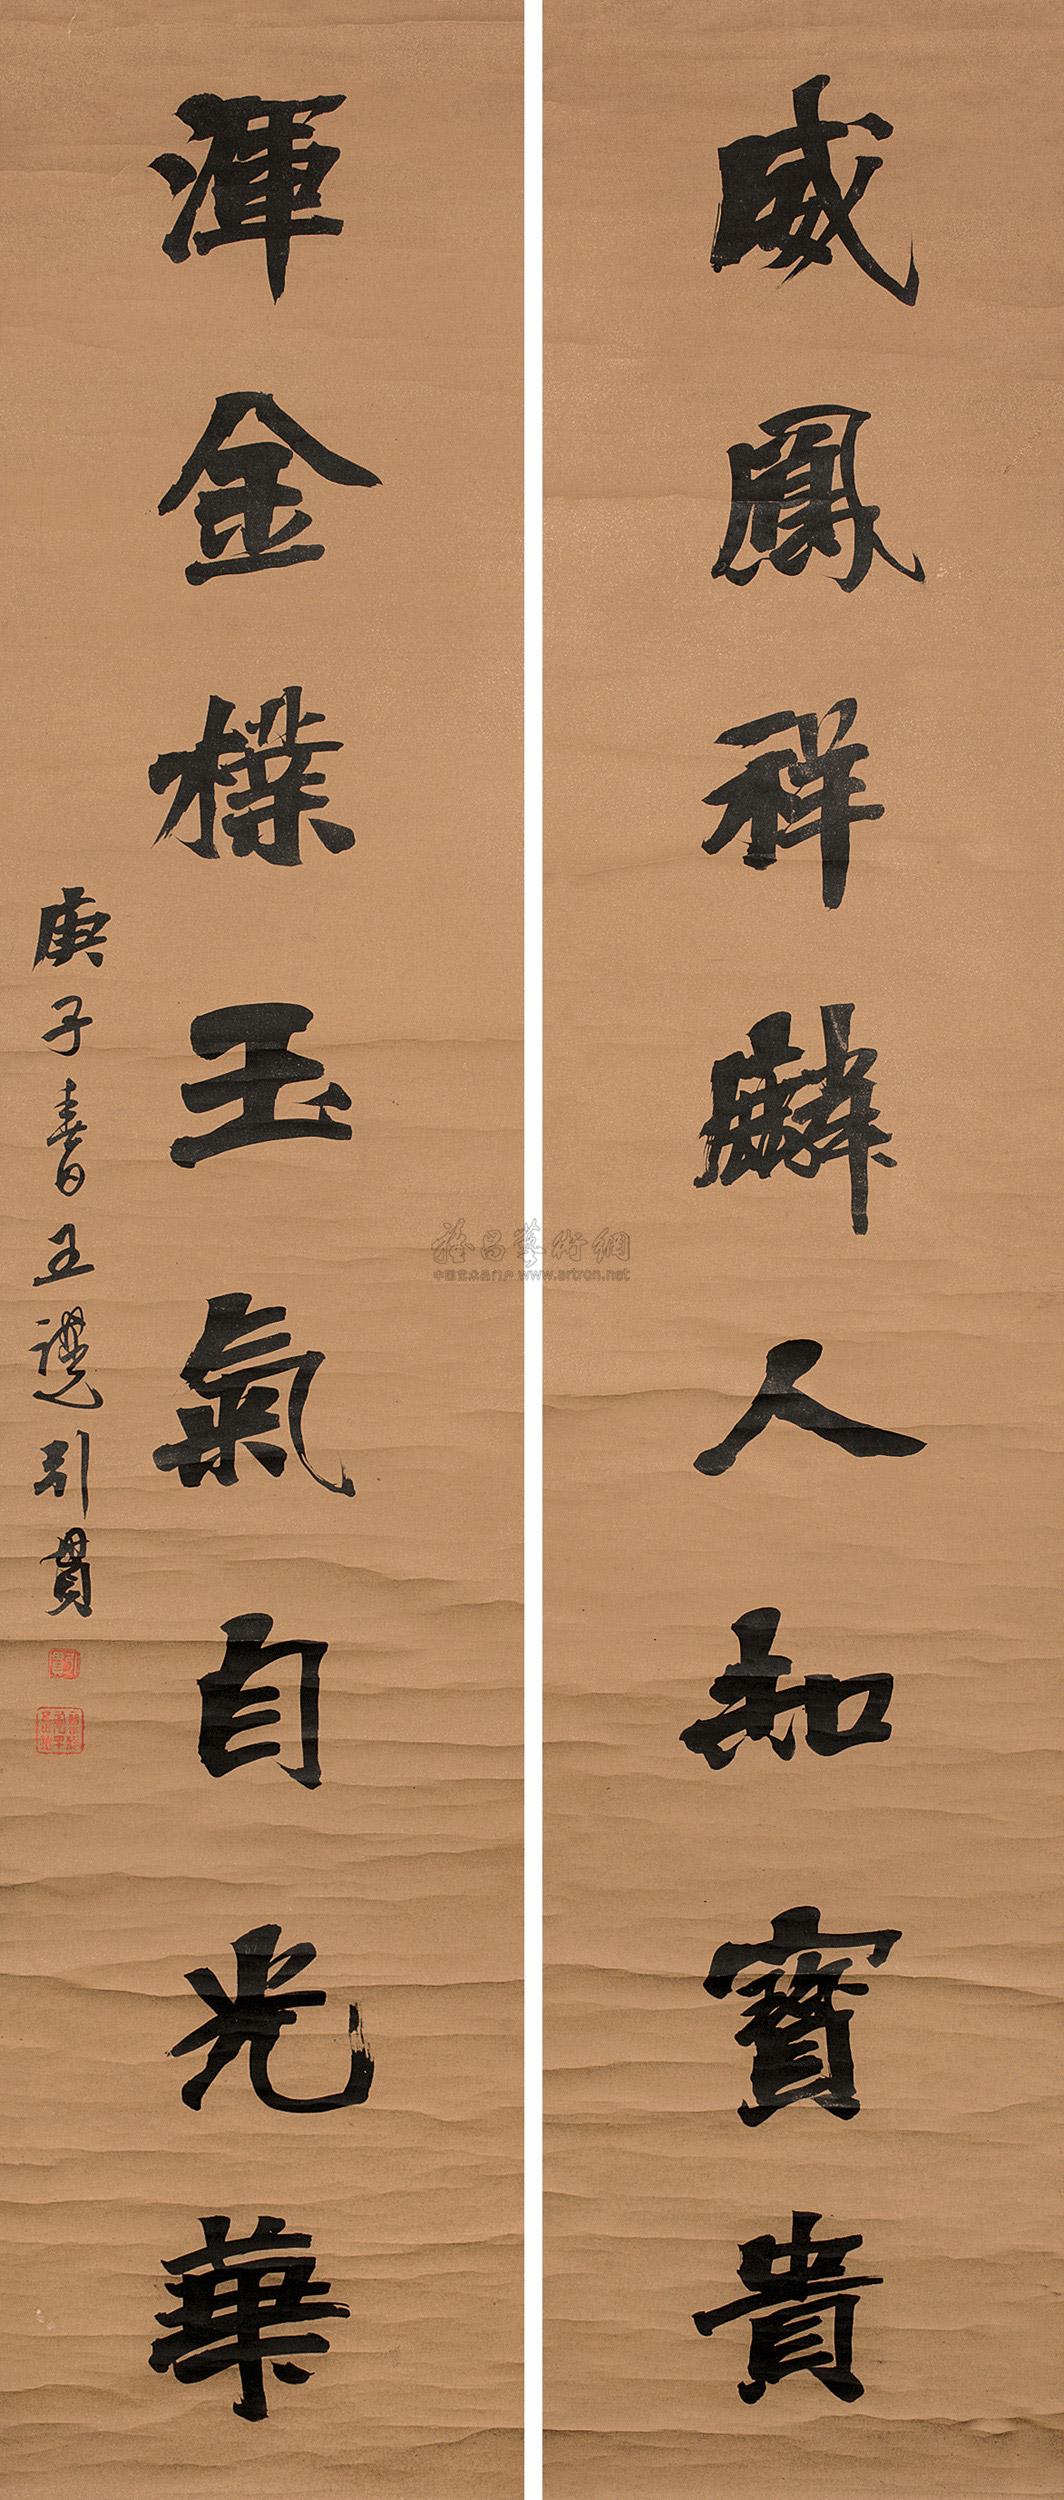 威鳳祥麟人知寶貴
渾金樸玉氣自光華
庚子春日王讚引貫
雅昌藝術網
中国艺术品门户 www.artron.net
引貫